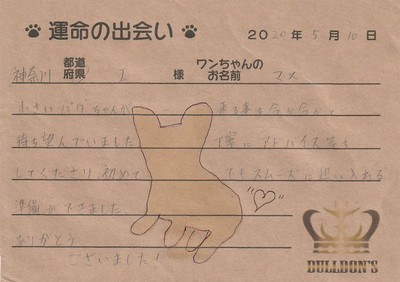 運命の出会い
2020年5月10日
神奈川 都道府県 様 ワンちゃんのお名前 マメ
小さいパグちゃんが 来る事を今か今かと
待ち望んでいました 丁寧にアドバイス等も
してくださり、初めて でもスムーズに 入れる
準備ができました
ありがとう
ございました!
BULLDON'S